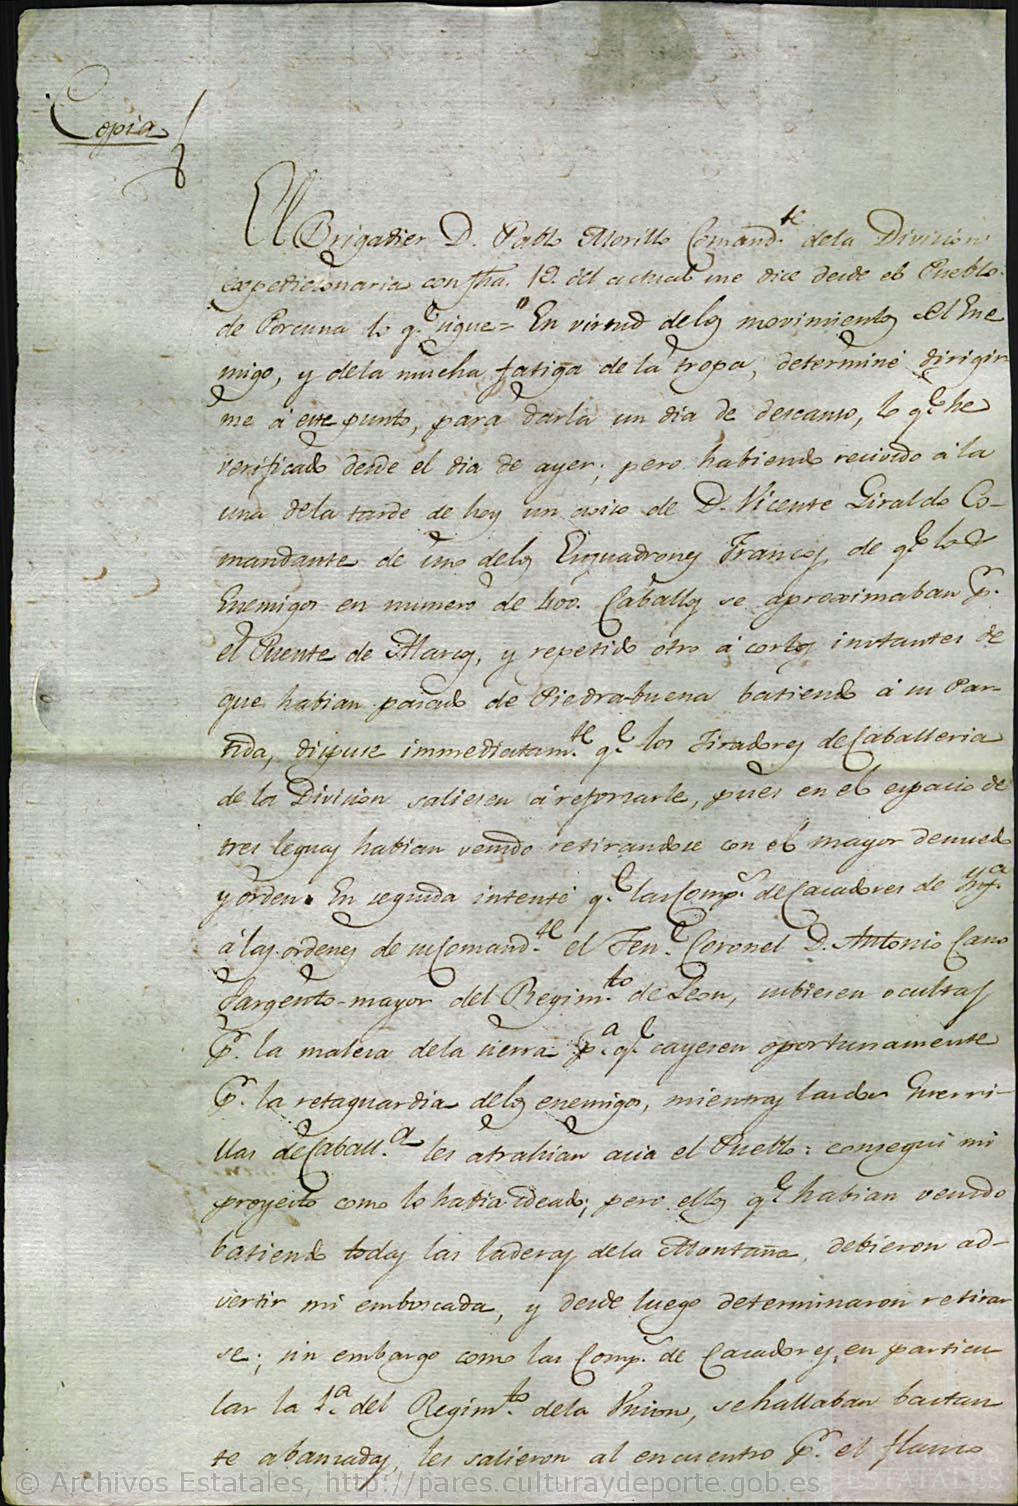 Copia
El Brigadier D. Pablo Morillo Comand.te de la Division
expedicionaria con fha. 12. del actual me dice desde el Pueblo
de Porcuna lo q.e sigue=" En virtud de los movimientos del Ene
migo, y de la mucha fatiga de la tropa, determiné dirigir
me á este punto, para darla un dia de descanso, lo q.e he
verificado desde el dia de ayer; pero habiendo recivido á la
una de la tarde de hoy un aviso de D. Vicente Giraldo Co-
mandante de uno de los Esquadrones Francos, de q.e los
Enemigos en numero de 400. Caballos se aproximaban p.r
el Puente de Alarcos, y repetido otro á cortos instantes de
que habian pasado de Piedra-buena batiendo á su Par-
tida, dispuse immediatam.te q.e los Tiradores de Caballeria
de la Division saliesen á reforsarle, pues en el espacio de
tres leguas habian venido retirandose con el mayor denuedo
y órden. En seguida intenté q.e las Comp.s de Casadores de Ynf.a
á las órdenes de su Comand.te el Ten.e Coronel D. Antonio Cano
Sargento-mayor del Regim.to de Leon, subiesen ocultas
p.r la malesa de la sierra p.a q.e cayesen oportunamente
p.r la retaguardia de los enemigos, mientras las dos Guerri-
llas de Caball.a les atrahian acia el Pueblo: consegui mi
proyecto como lo habia ideado; pero ellos q.e habian venido
batiendo todas las laderas de la Montaña, debieron ad-
vertir mi emboscada, y desde luego determinaron retirar
se; sin embargo como las Comp.s de Casadores, en particu
lar la 1.a del Regim.to de la Union, se hallaban bastan
te abansadas, les salieron al encuentro p.r el flanco
© Archivos Estatales, http://pares.culturaydeporte.gob.es